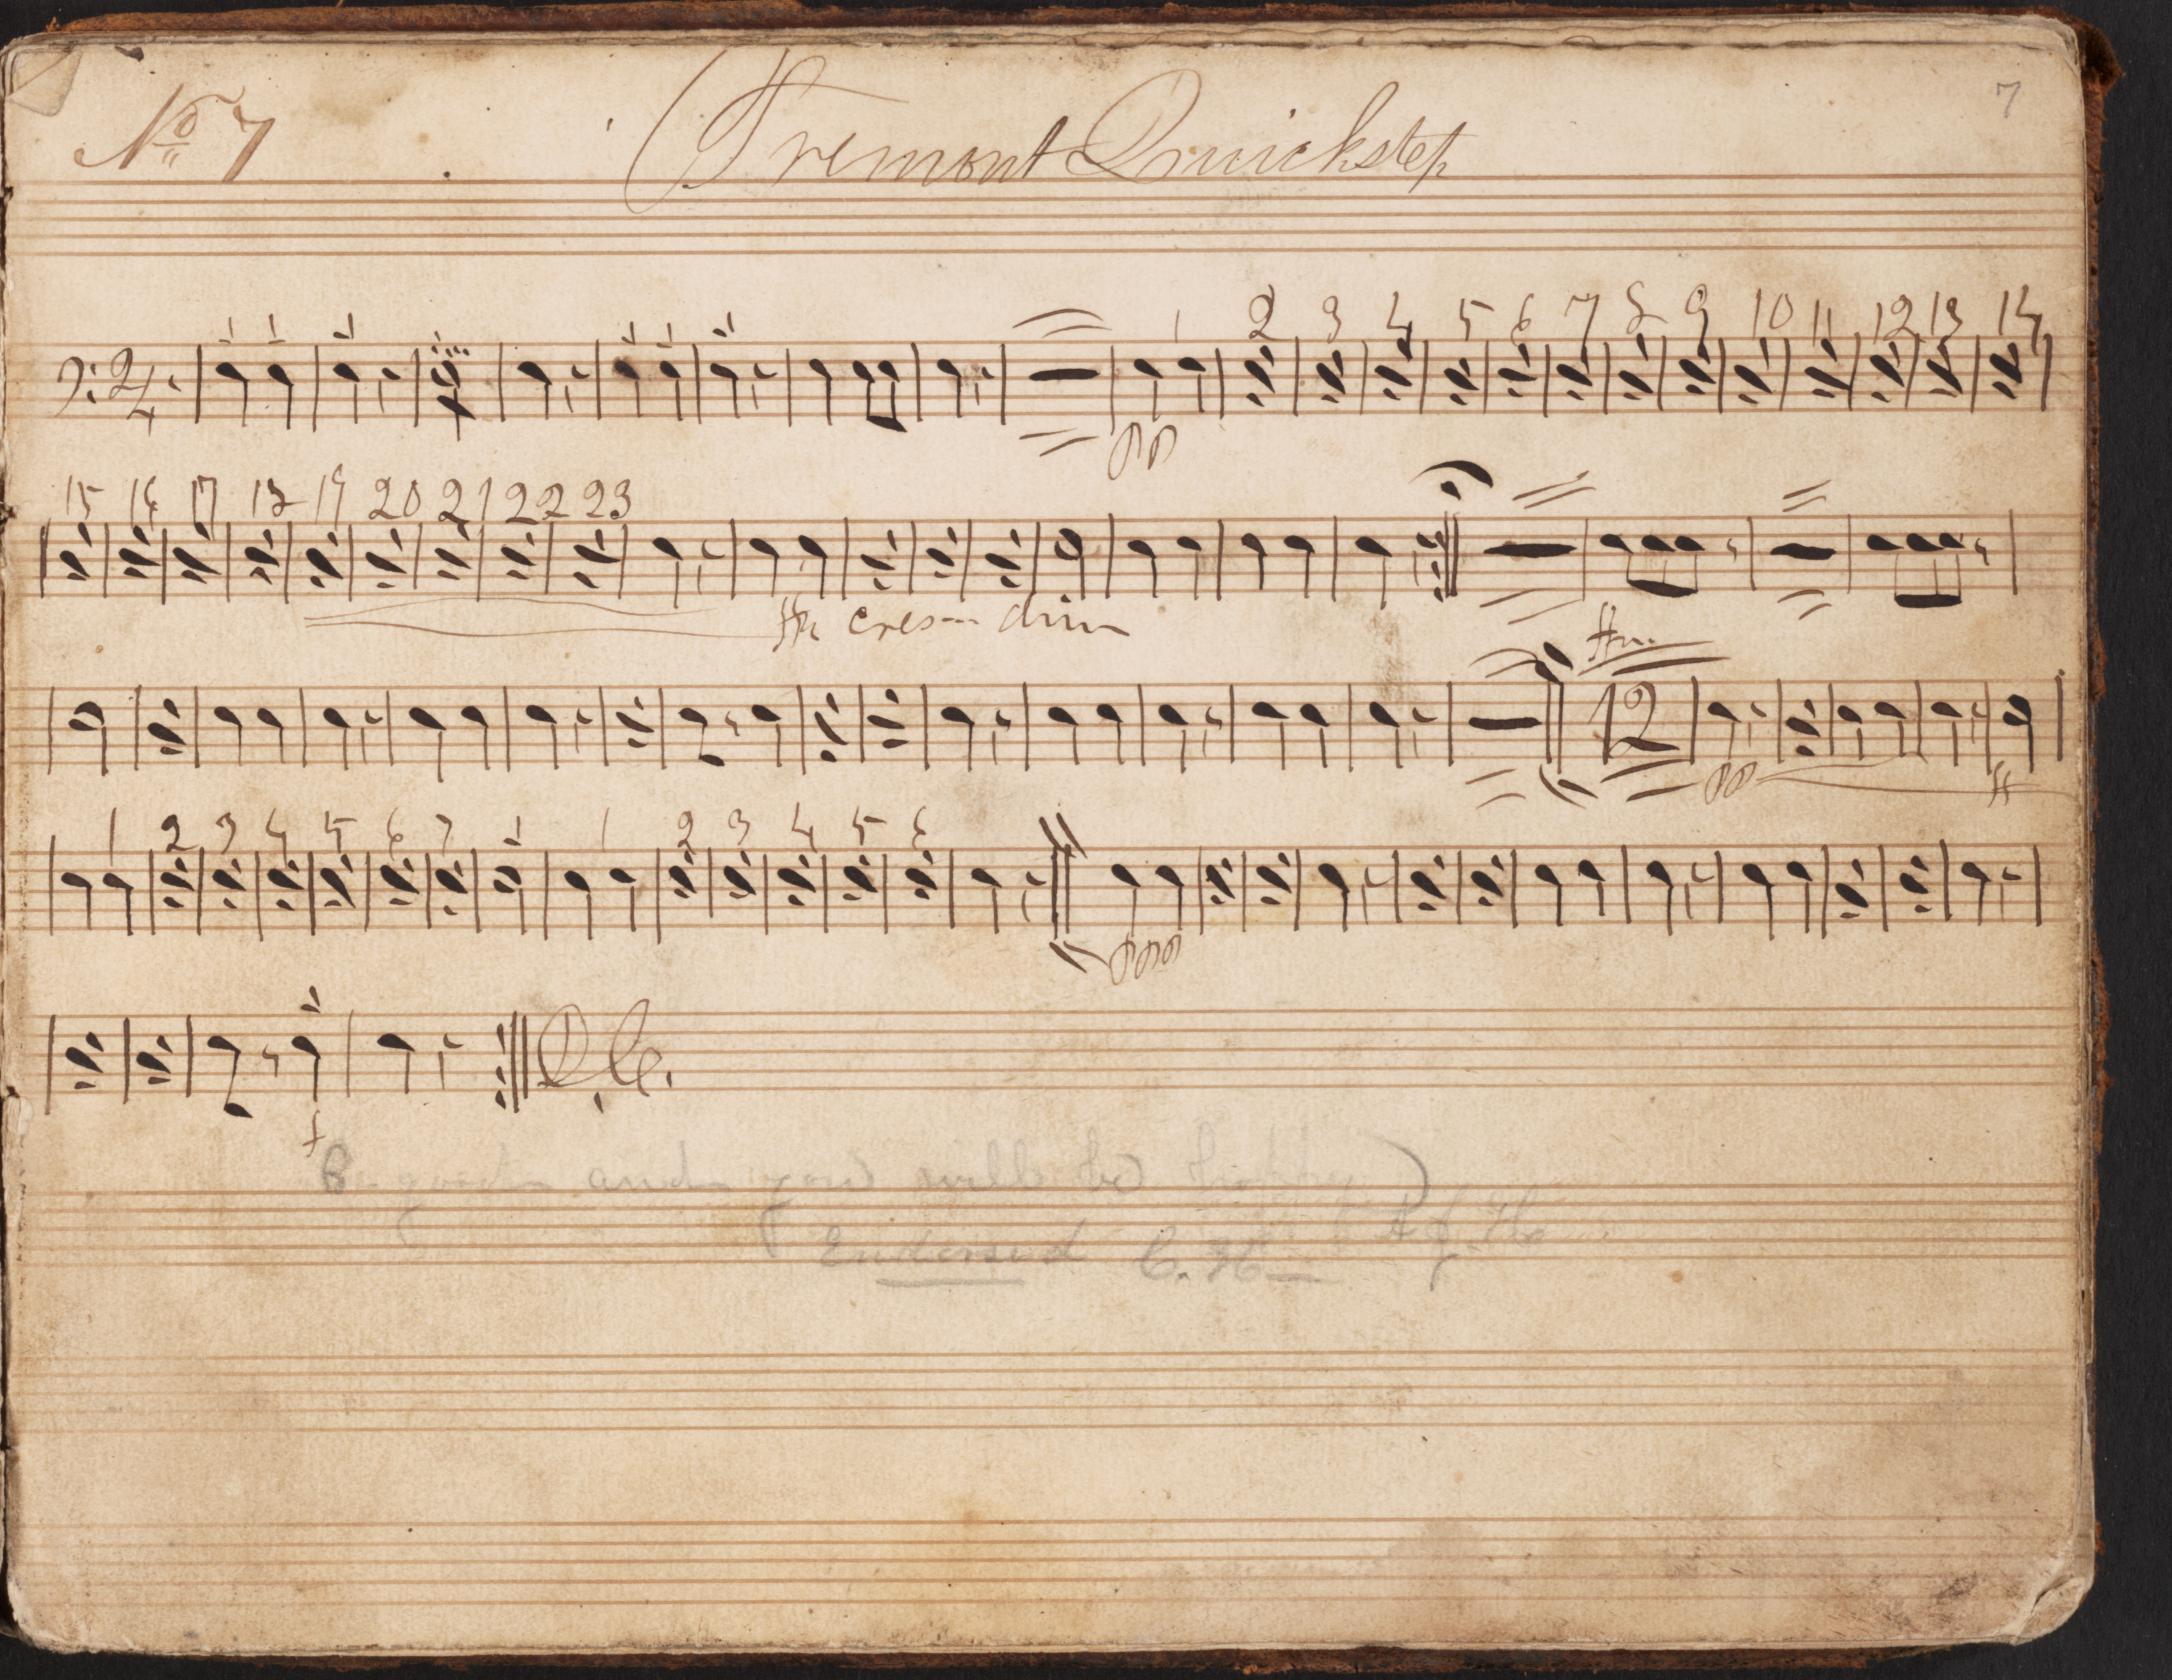 No 7 Tremont Quickstep 7
2/4
1 2 3 4 5 6 7 8 9 10 11 12 13 14
pp
15 16 17 18 19 20 21 22 23
cres dim
12
pp ff
1 2 3 4 5 6 7 1 1 2 3 4 5 6
ppp
D.C.
f
Be good and you will be happy
Endorsed C. H.